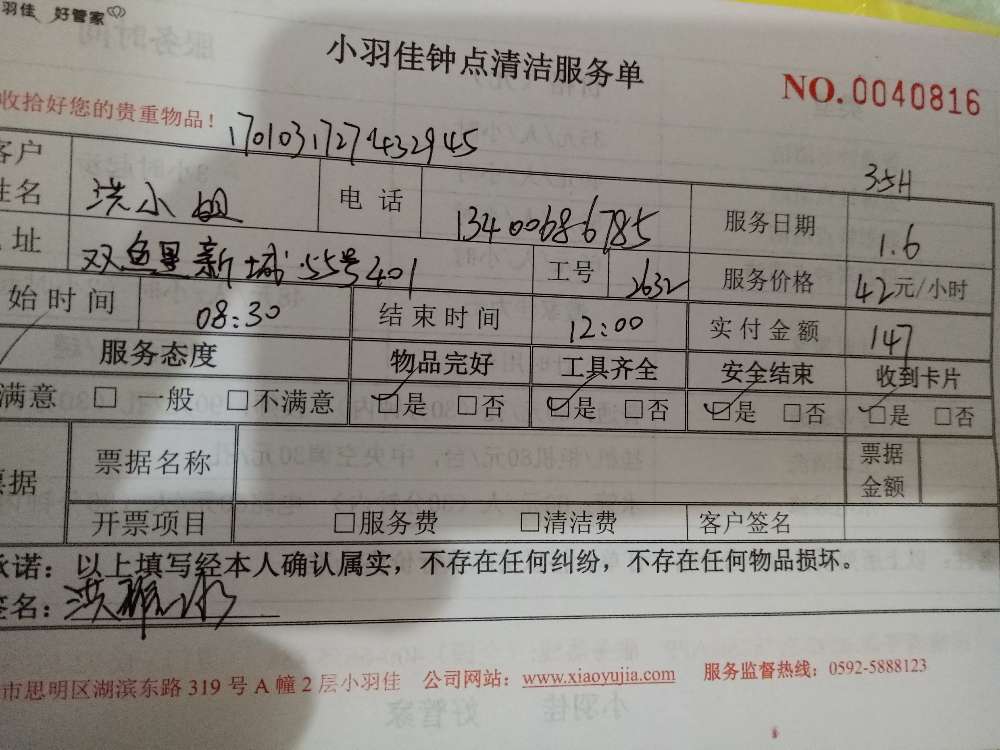 羽佳 好管家
小羽佳钟点清洁服务单
NO. 0040816
收拾好您的贵重物品！
1701031727432945
3.5H
客户姓名 洪小姐 电话 13400686785 服务日期 1.6
址 双鱼里新城.55号401 工号 2632 服务价格 42元/小时
始时间 08:30 结束时间 12:00 实付金额 147
服务态度 物品完好 工具齐全 安全结束 收到卡片
满意 □一般 □不满意 ☑是 □否 ☑是 □否 ☑是 □否 ☑是 □否
票据 票据名称 票据金额
开票项目 □服务费 □清洁费 客户签名
承诺：以上填写经本人确认属实，不存在任何纠纷，不存在任何物品损坏。
签名：洪
市思明区湖滨东路 319 号 A 幢 2 层小羽佳 公司网站：www.xiaoyujia.com 服务监督热线：0592-5888123